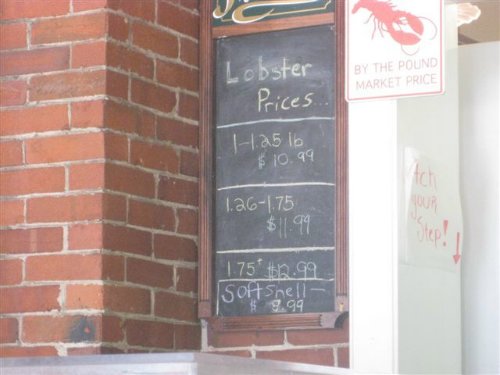 Lobster
Prices...
1-1.25 lb
$10.99
1.26-1.75
$11.99
1.75+ $12.99
Softshell-
$ 9.99
BY THE POUND
MARKET PRICE
your
Step!